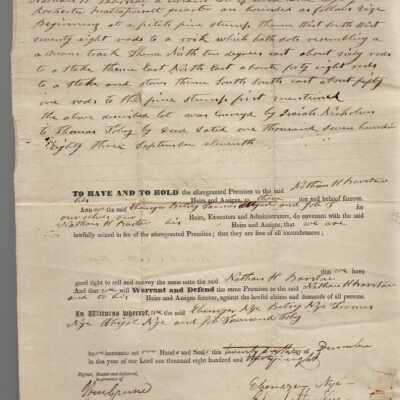 Rochester Massachusetts
Beginning at a pitch pine stump, thence West South West
twenty eight rods to a rock which hath dots resembling a
track Thence North ten degrees east about sixty rods
to a stake thence East North East about forty eight rods
to a stake and stones thence South South east about fifty
one rods to the pine stump first mentioned
the above described lot was conveyed by Nicholson
to Thomas Toby by deed dated one thousand seven hundred
Eighty three September eleventh
TO HAVE AND TO HOLD the aforegranted Premises to the said Nathan H Barstow
his Heirs and Assigns, to their use and behoof forever.
And we the said Ebenezer Betsy of
ourselves our Heirs, Executors and Administrators, do covenant with the said
Nathan H Barstow his Heirs and Assigns, that we are
lawfully seized in fee of the aforegranted Premises; that they are free of all incumbrances;
that we have
good right to sell and convey the same unto the said Nathan H Barstow
And that we will Warrant and Defend the same Premises to the said Nathan H Barstow
and to his Heirs and Assigns forever, against the lawful claims and demands of all persons.
In Witness whereof, we the said Ebenezer Nye Betsy Nye
Nye Abigal Nye and Toby
have hereunto set our Hands and Seals this day of December
in the year of our Lord one thousand eight hundred and
Signed, Sealed and Delivered,
in presence of
Ebenezer Nye